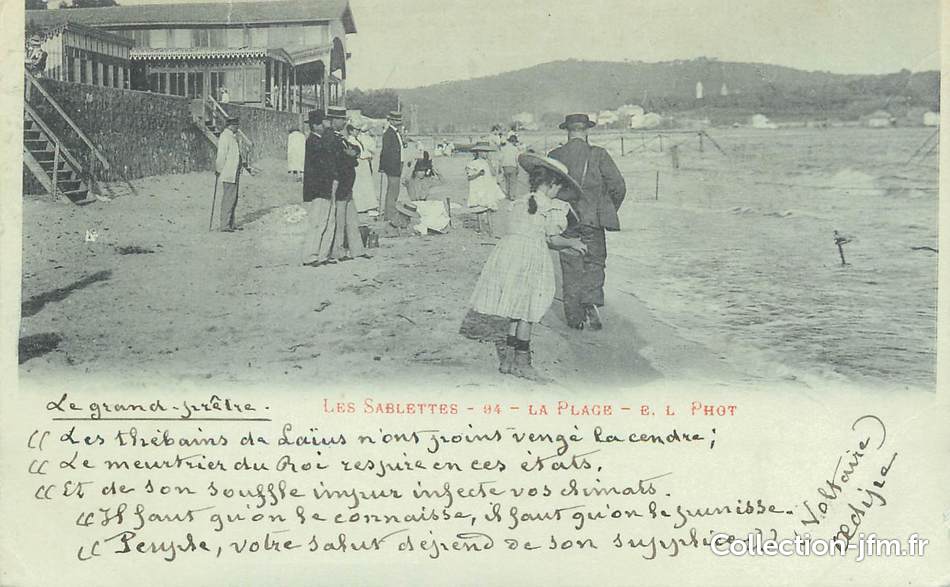 Le grand-prêtre.
LES SABLETTES - 94 - LA PLAGE - E. L PHOT
"Les thébains de Laïus n'ont point vengé la cendre;
"Le meurtrier du Roi respire en ces états,
"Et de son souffle impur infecte vos climats.
"Il faut qu'on le connaisse, il faut qu'on le punisse.
"Peuple, votre salut dépend de son supplice."
Voltaire)
Oedipe
Collection-jfm.fr